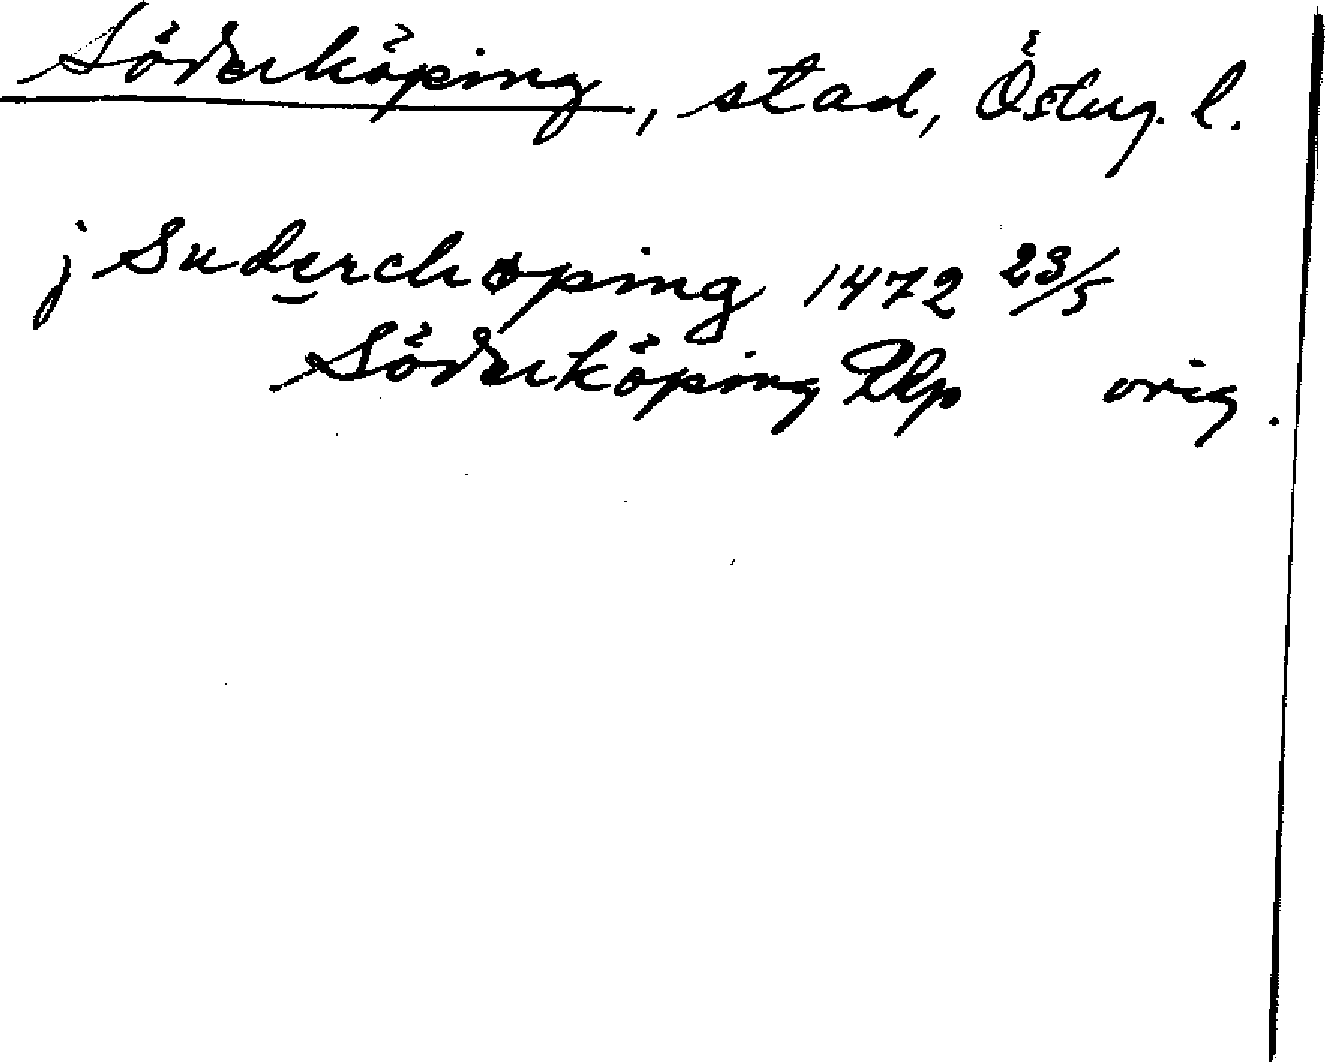 Söderköping, stad, Österg. l.
j Suderchøping 1472 23/5
Söderköping RAp orig.